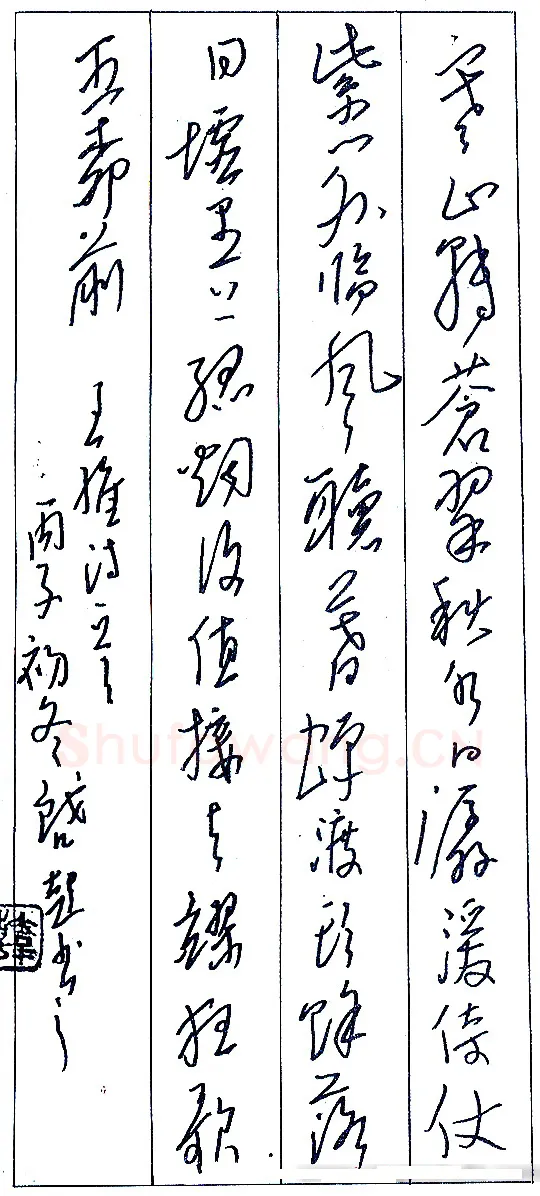 寒山轉蒼翠秋水日潺湲倚仗
柴門外臨風聽暮蟬渡頭餘落
日墟里上孤烟復值接輿醉狂歌
五柳前
王維詩一首
丙子初冬
Shufawang.CN